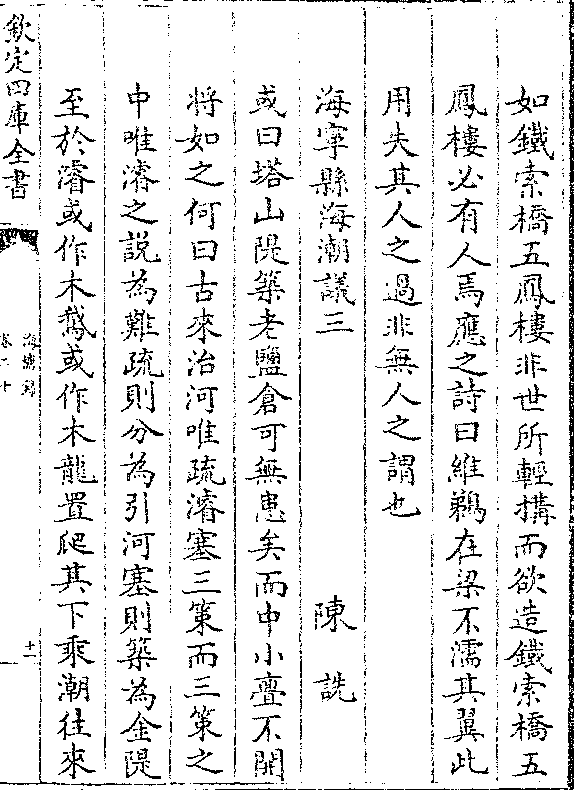 如鐵索橋五鳳樓非世所輕搆而欲造鐵索橋五
鳳樓必有人焉應之詩曰維鵜在梁不濡其翼此
用失其人之過非無人之謂也
海寧縣海潮議三 陳詵
或曰塔山隄築老鹽倉可無患矣而中小亹不開
將如之何曰古來治河唯疏濬塞三策而三策之
中唯濬之說為難疏則分為引河塞則築為金隄
至於濬或作木鵞或作木龍置爬其下乘潮往來
欽定四庫全書
海塘録
卷二十
十一